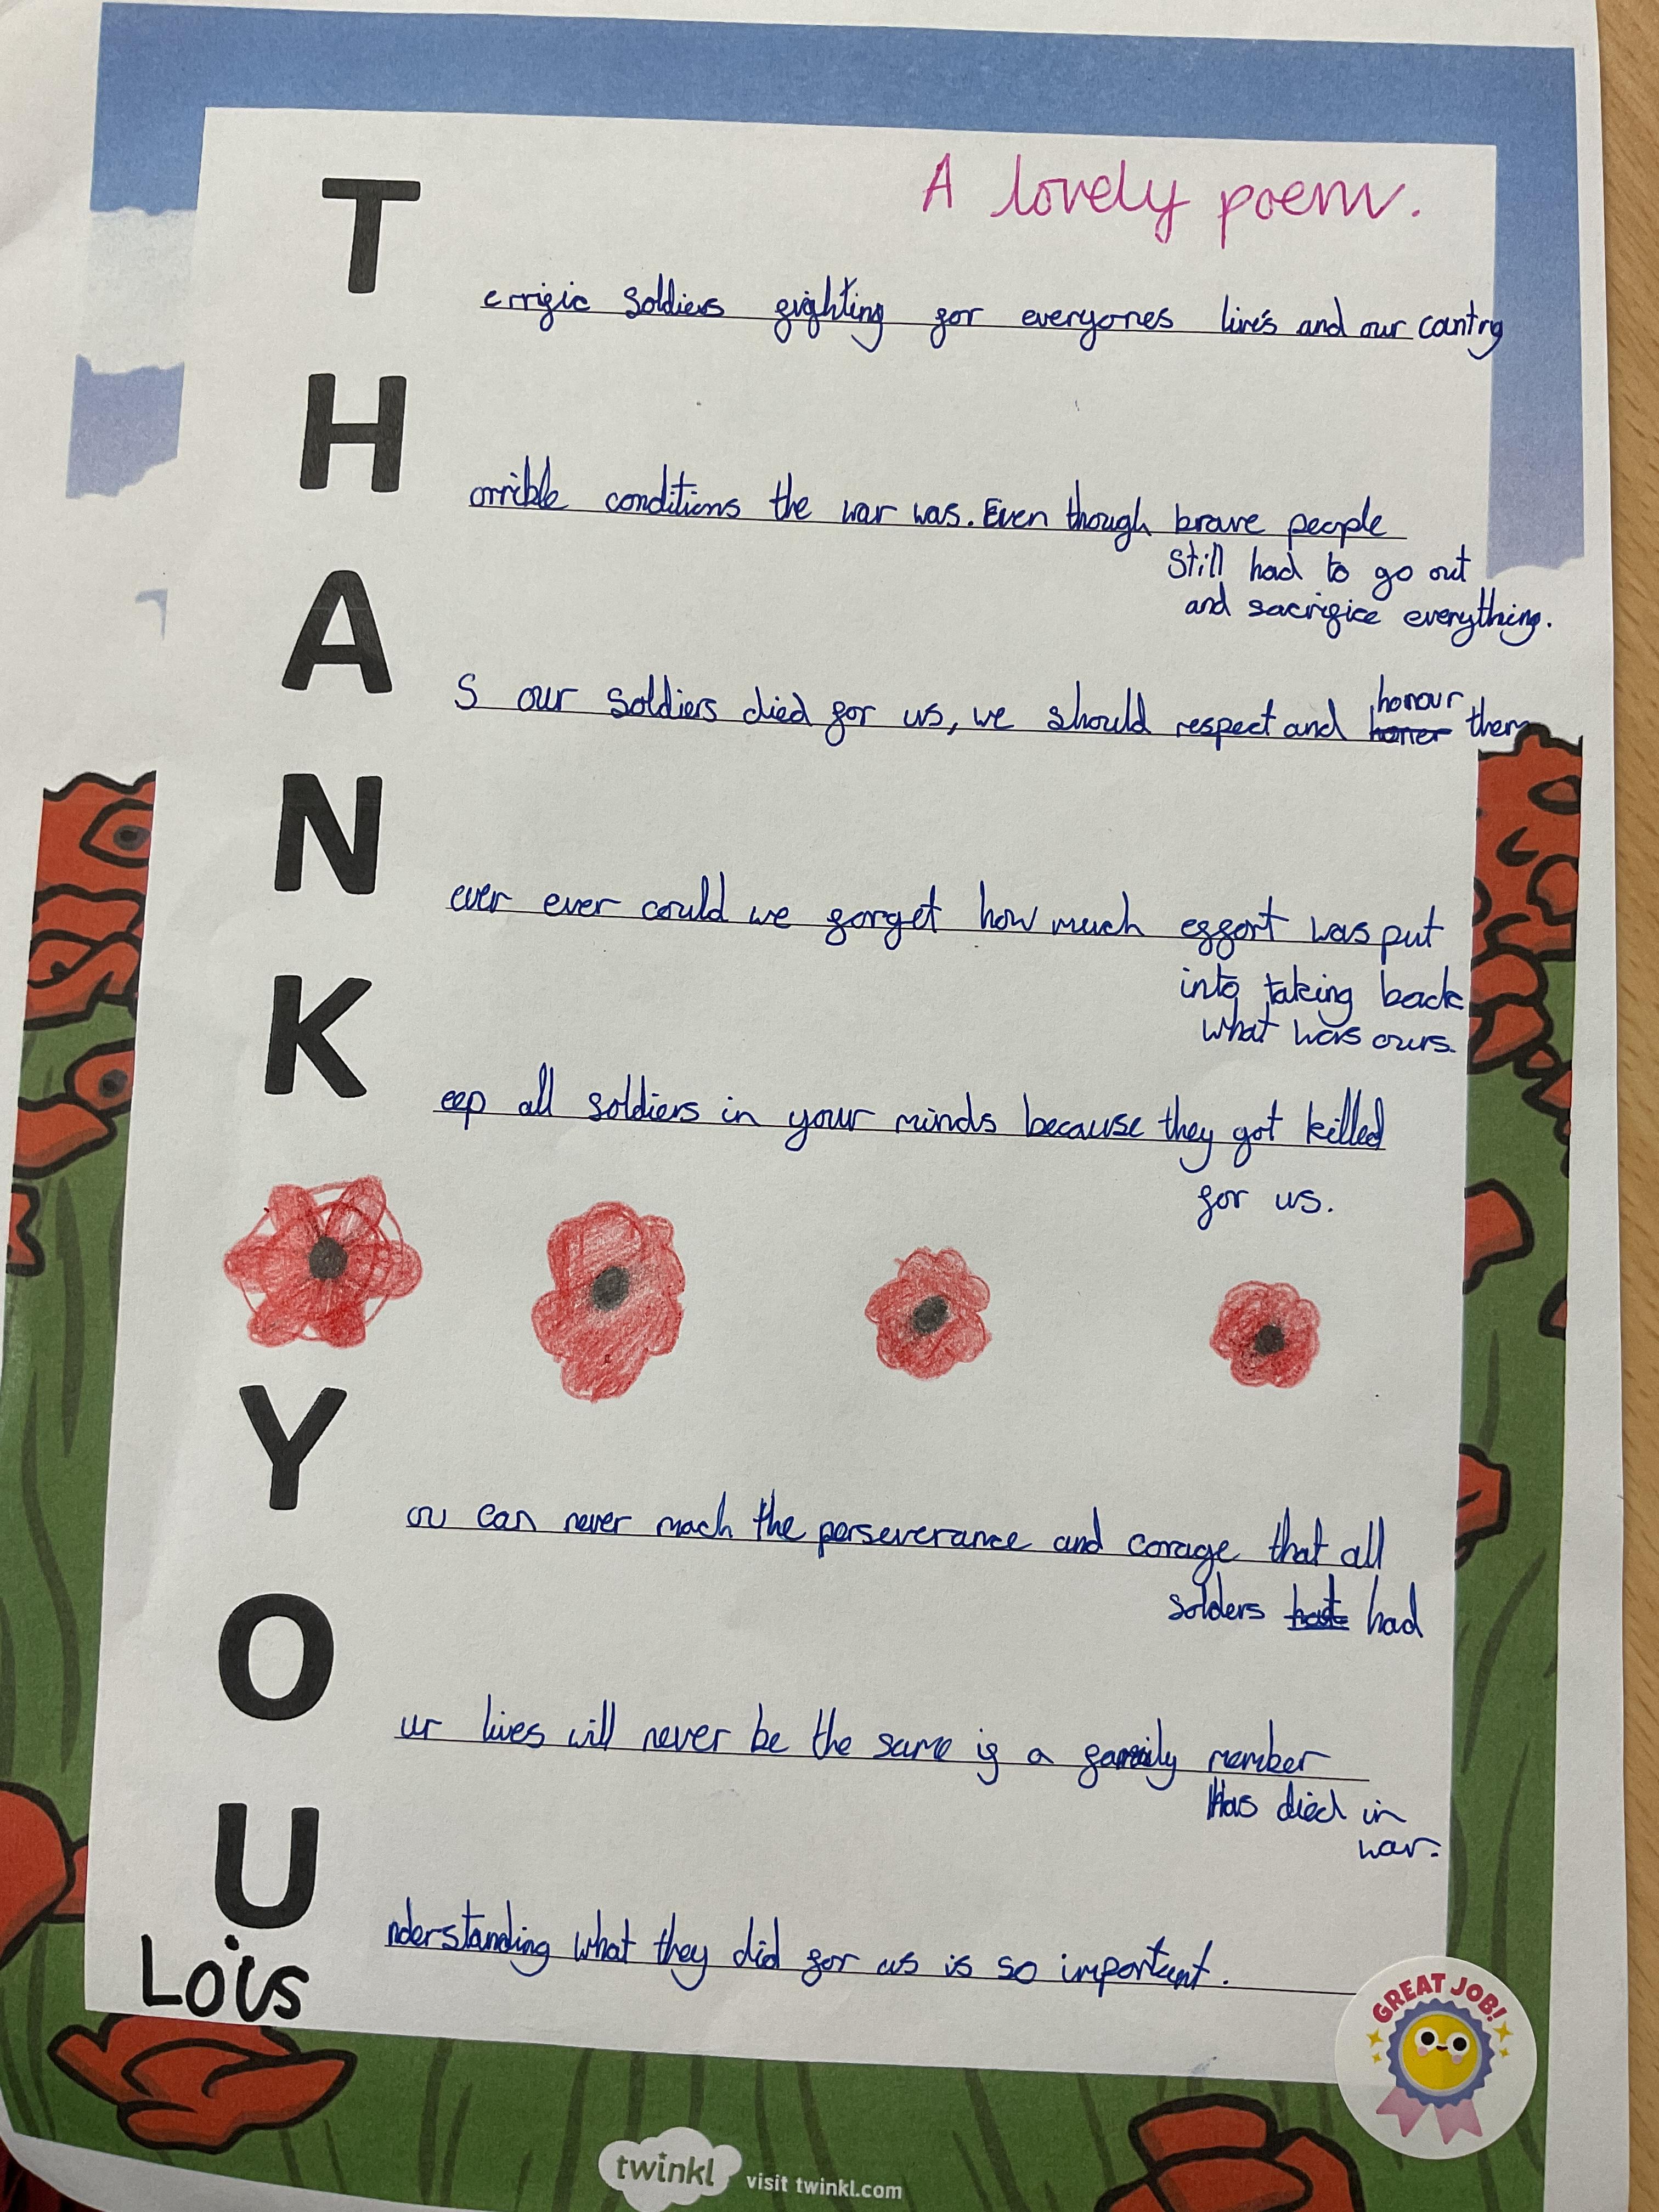 A lovely poem.
T errific soldiers fighting for everyones live's and our cantry
H orrible conditions the war was. Even though brave people
still had to go out
and sacrifice everything.
A S our soldiers died for us, we should respect and honour them
honer
N ever ever could we forget how much effort was put
into taking back
what was ours.
K eep all soldiers in your minds because they got killed
for us.
Y ou can never mach the perseverance and corage that all
solders hat had
O ur lives will never be the same if a family member
Has died in
war.
U nderstanding what they did for us is so important.
Lois
GREAT JOB!
twinkl visit twinkl.com